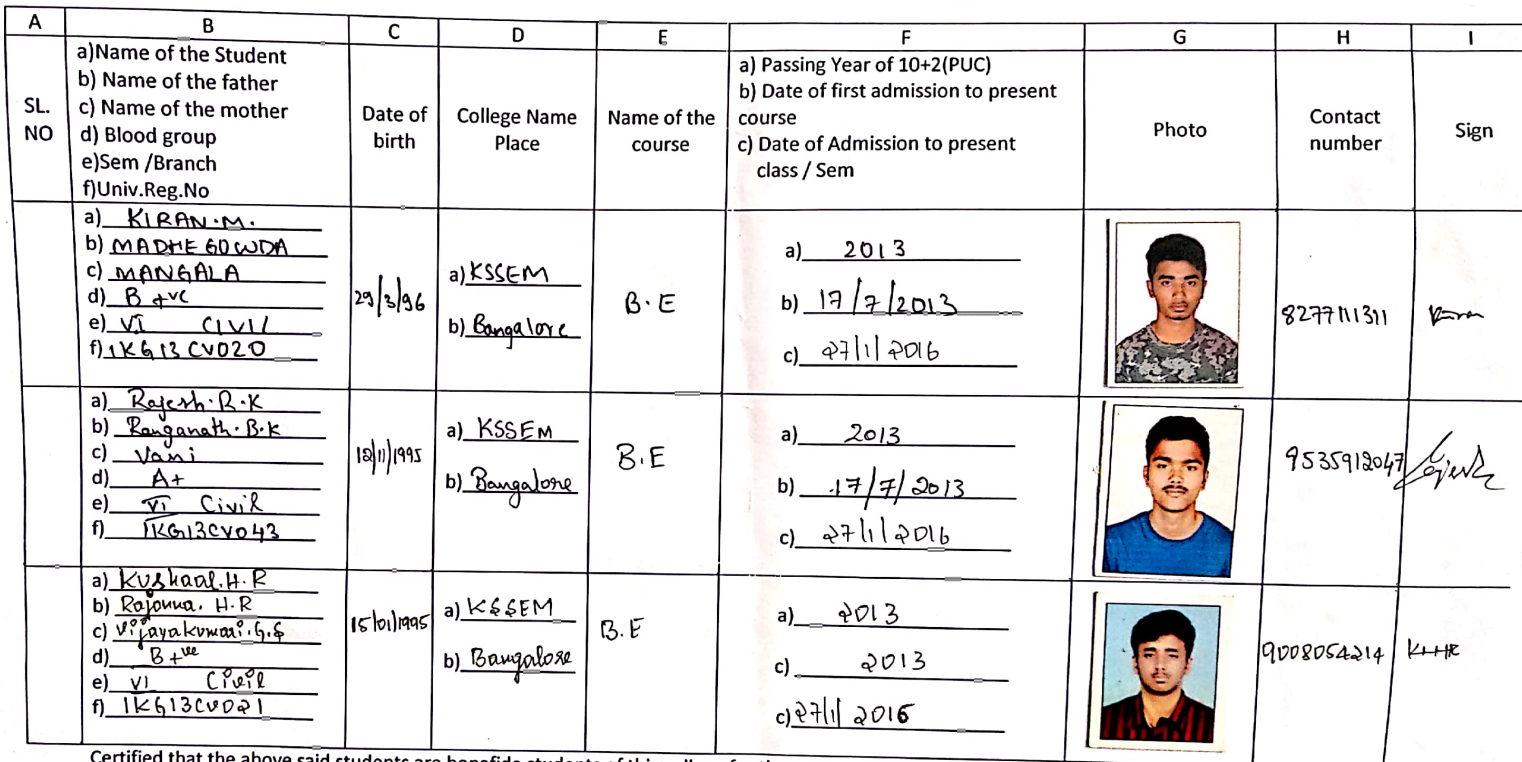 A B C D E F G H I
SL.
NO
a)Name of the Student
b) Name of the father
c) Name of the mother
d) Blood group
e)Sem /Branch
f)Univ.Reg.No
Date of
birth
College Name
Place
Name of the
course
a) Passing Year of 10+2(PUC)
b) Date of first admission to present
course
c) Date of Admission to present
class / Sem
Photo
Contact
number
Sign
a) KIRAN.M.
b) MADHE GOWDA
c) MANGALA
d) B +ve
e) VI CIVIL
f) 1KG13CV020
29/3/96
a) KSSEM
b) Bangalore
B.E
a) 2013
b) 17/7/2013
c) 27/1/2016
8277111311
Kiran
a) Rajesh.B.K
b) Ranganath.B.K
c) Vani
d) A+
e) VI Civil
f) 1KG13CV043
12/11/1995
a) KSSEM
b) Bangalore
B.E
a) 2013
b) 17/7/2013
c) 27/1/2016
9535912047
a) Kushaal.H.R
b) Rajanna. H.R
c) Vijayakumari.G.S
d) B +ve
e) VI Civil
f) 1KG13CV021
15/01/1995
a) KSSEM
b) Bangalore
B.E
a) 2013
c) 2013
c) 27/1/2016
9008054214
Certified that the above said students are bonafide students of this college for the